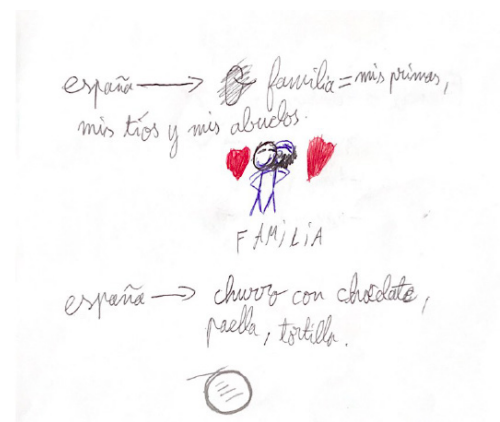 españa → familia = mis primas,
mis tíos y mis abuelos.
FAMiLiA
españa → churro con chocolate,
paella, tortilla.